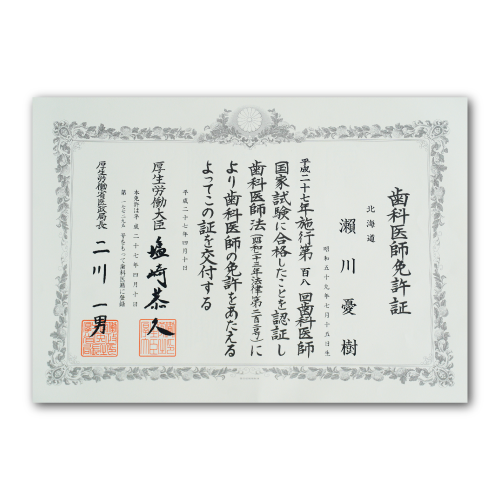 歯科医師免許証
北海道
瀬川憂樹
昭和五十九年七月十五日生
平成二十七年施行第百八回歯科医師
国家試験に合格したことを認証し
歯科医師法(昭和二十三年法律第二百二号)に
より歯科医師の免許をあたえる
よってこの証を交付する
平成二十七年四月十日
厚生労働大臣 塩崎恭久
本免許は平成二十七年四月十日
号をもって歯科医籍に登録
厚生労働省医政局長 二川一男